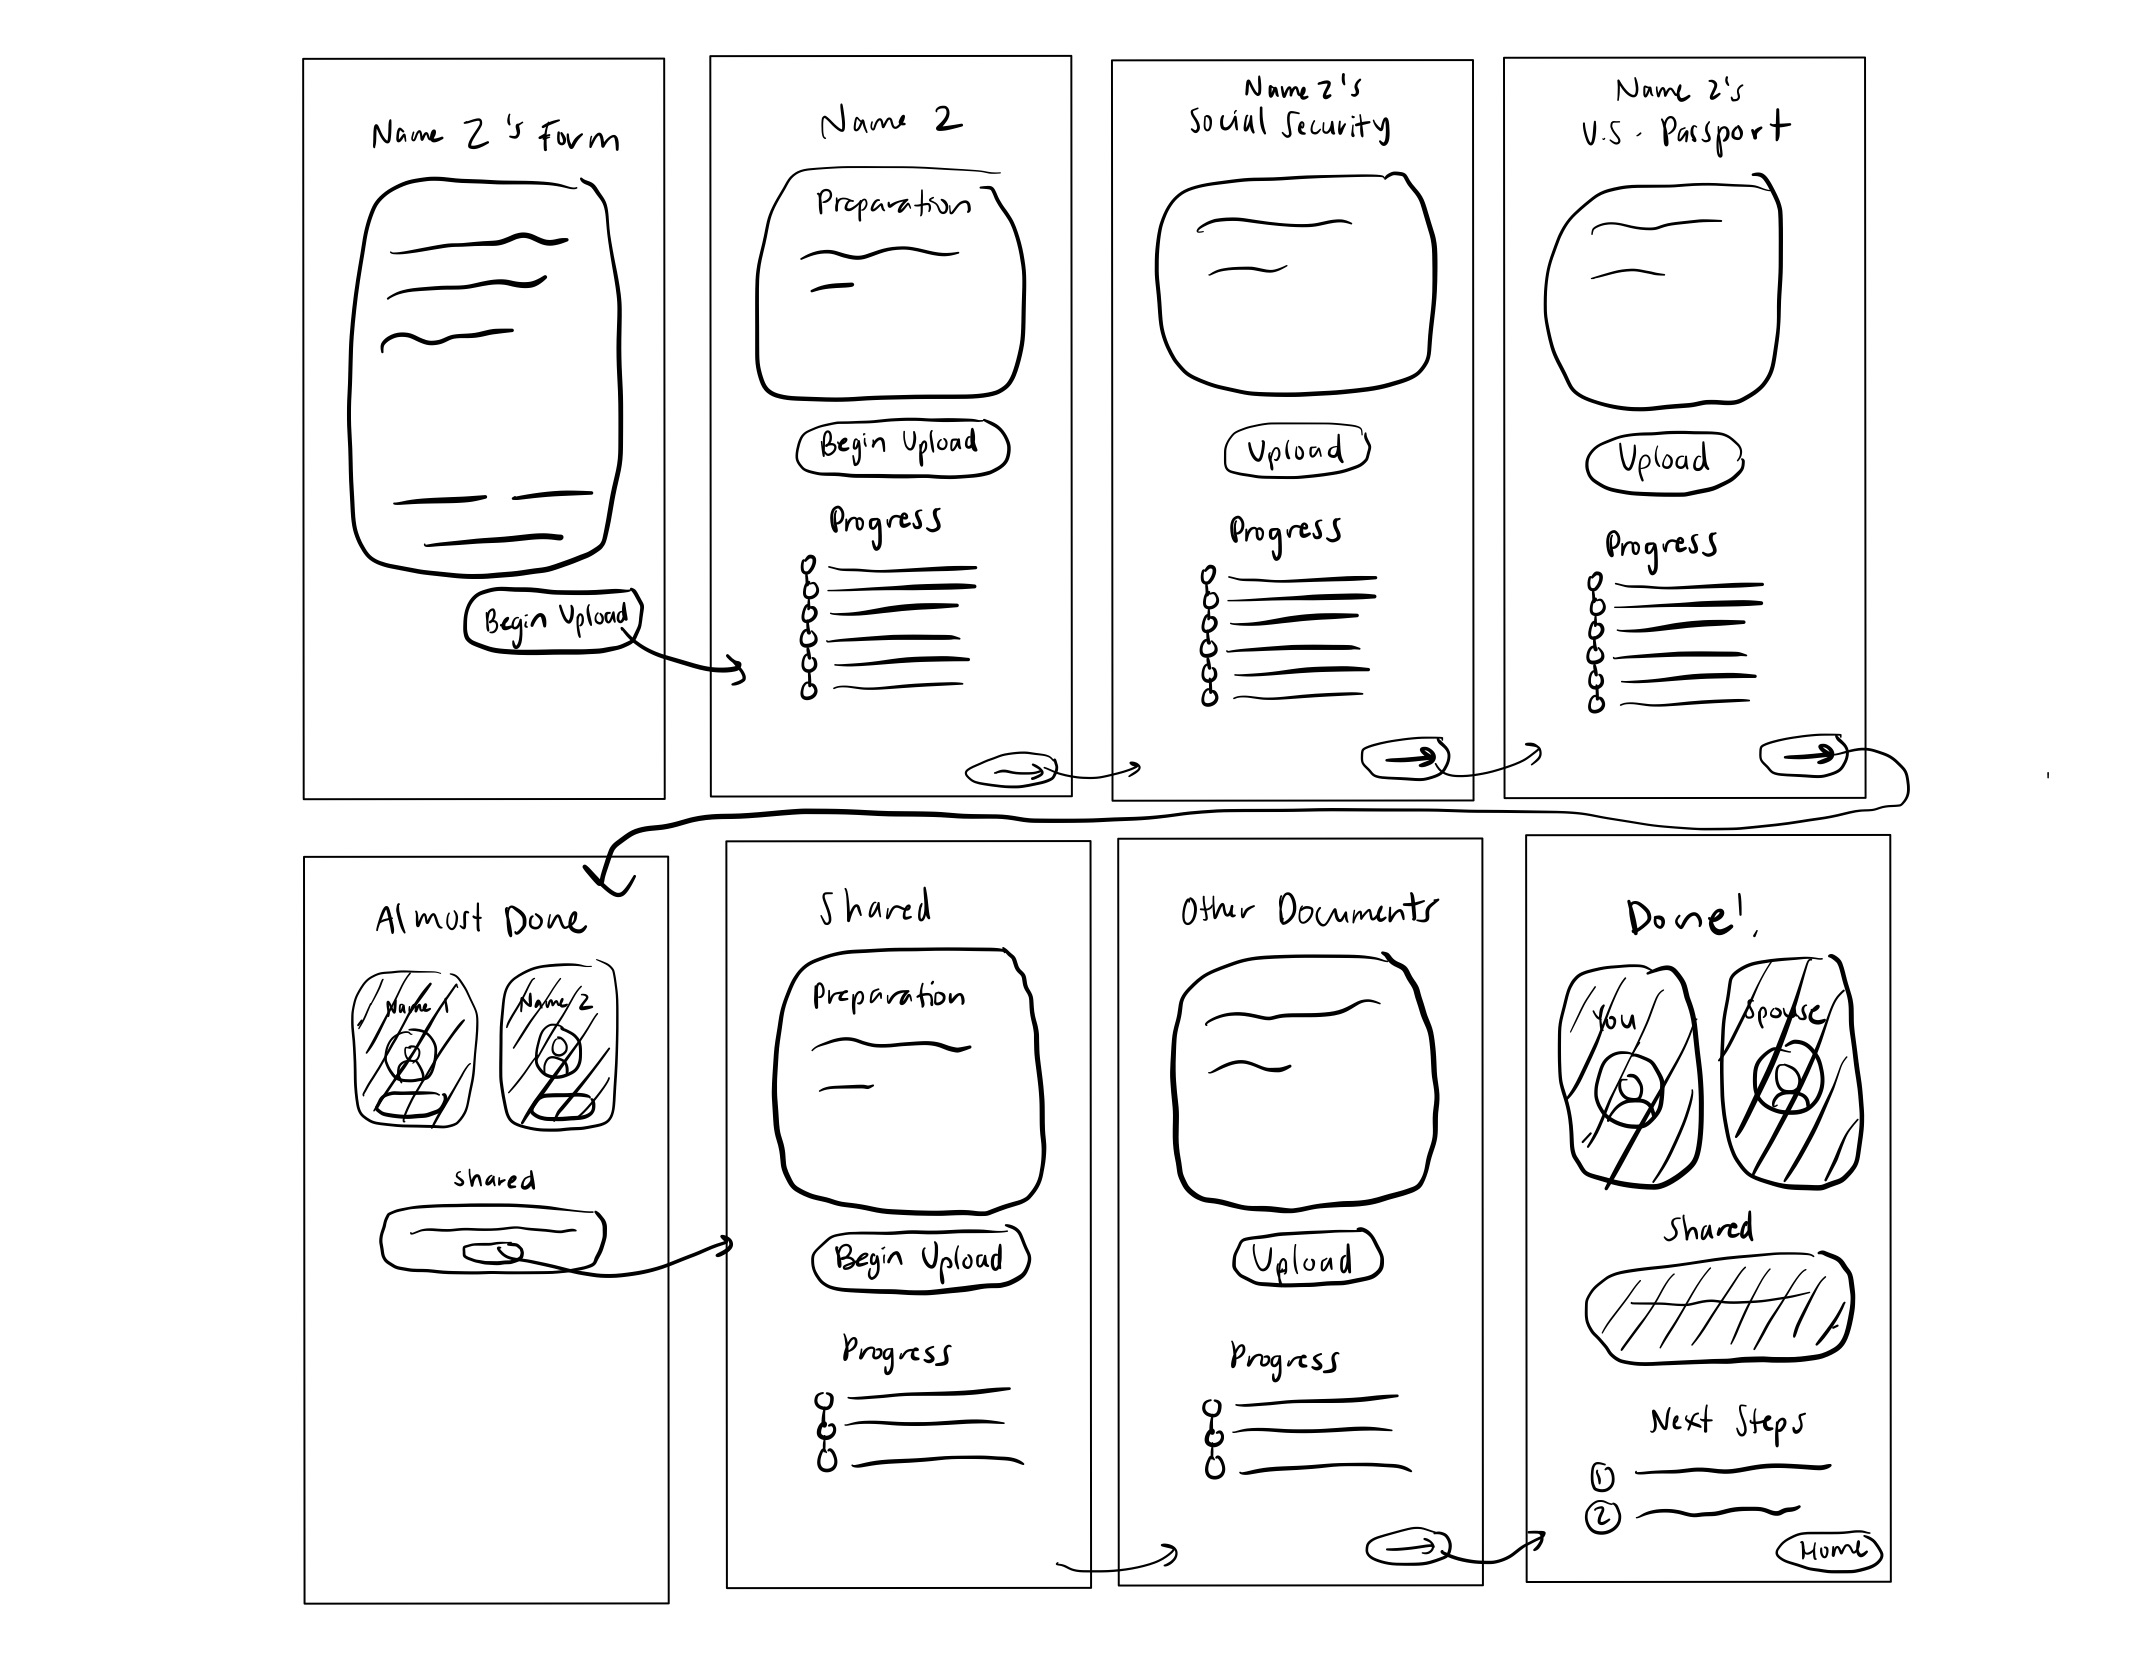 Name 2's Form
Begin Upload
Name 2
Preparation
Begin Upload
Progress
Name 2's
Social Security
Upload
Progress
Name 2's
U.S. Passport
Upload
Progress
Almost Done
Name 1
Name 2
shared
Shared
Preparation
Begin Upload
Progress
Other Documents
Upload
Progress
Done!
You
Spouse
Shared
Next Steps
1
2
Home